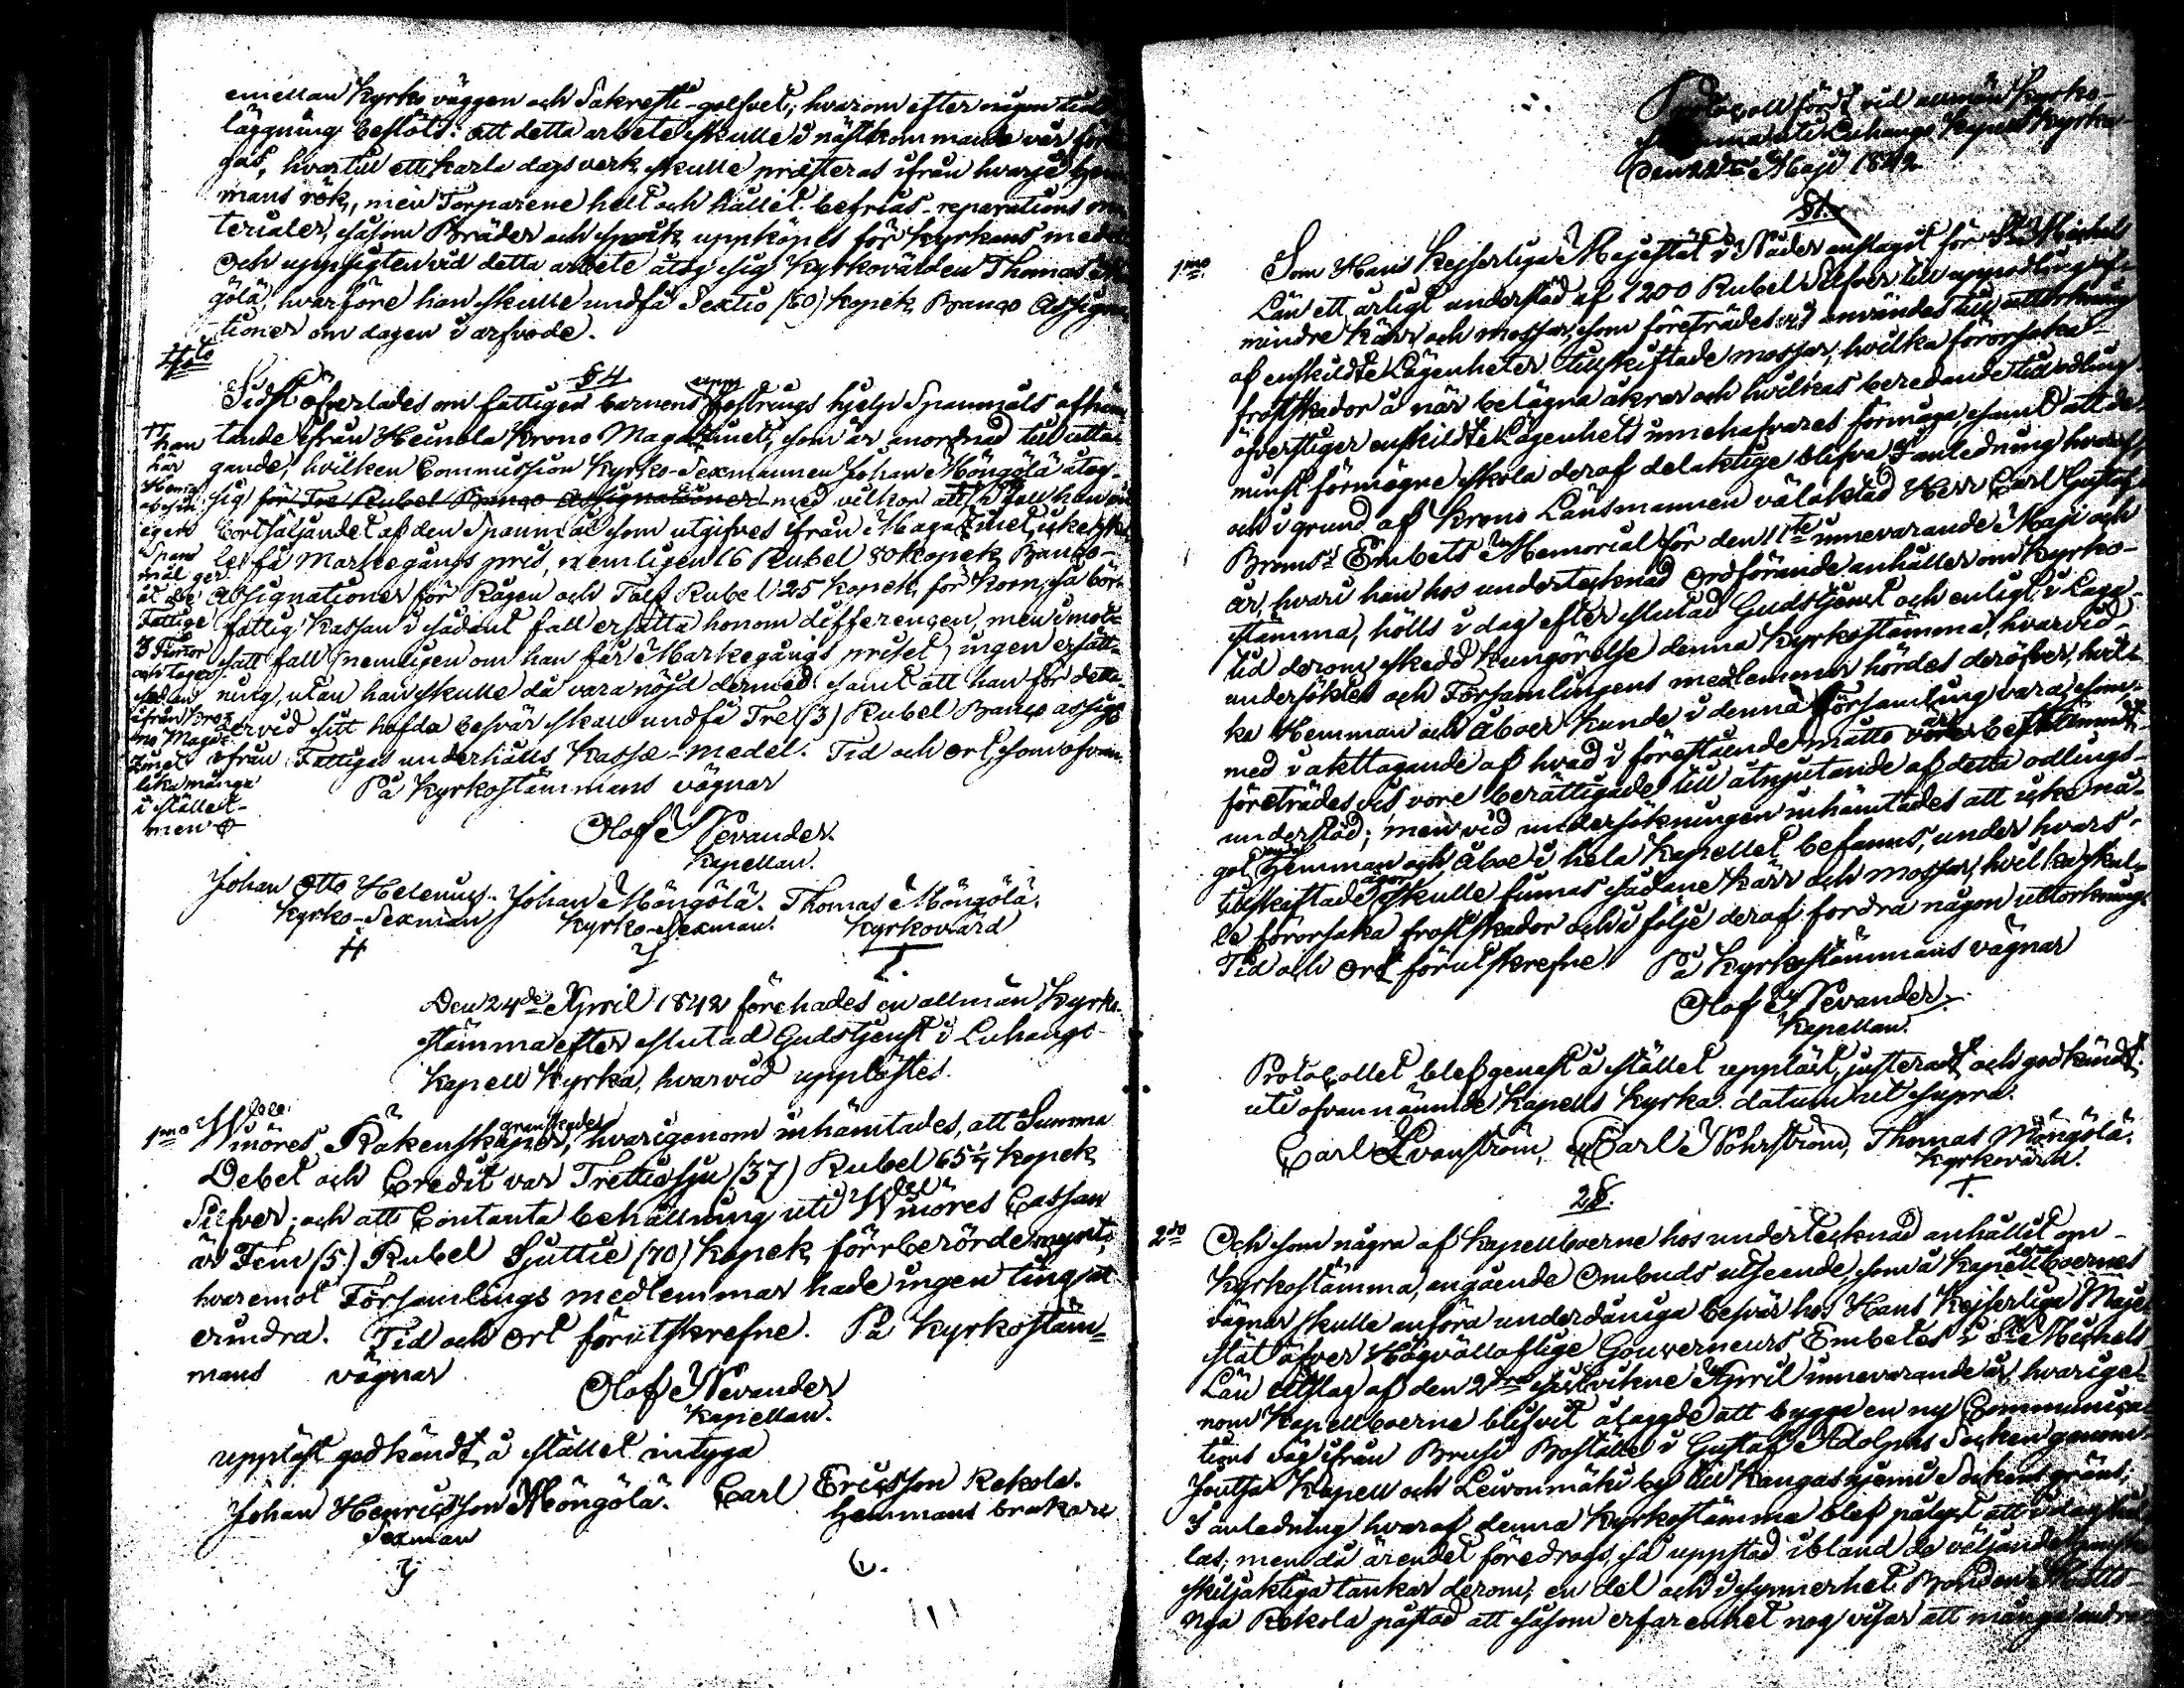 emellan Kyrko väggen och Sakresti-golfvet; hvarom efter någon
läggning beslöts: att detta arbete skulle i nästkommande vår
gas, hvartill ett karla dagsverk skulle presteras ifrån hvarje
mans rök, men Torparene helt och hållet befrias- reparations
terialer, såsom Bräder och spik uppköpes för Kyrkans
Och uppsigten vid detta arbete åtog sig Kyrkovärden Thomas
gölä, hvarföre han skulle undfå Sextio (60) kopek Banco
tioner om dagen i arfvode.
4to
§ 4
Sidst öfverlades om fattiges barnens fostrings hjelp Spanmåls
tande ifrån Heinola Krono Magazinet, som är anordnad till utta-
gande, hvilken Commission Kyrko-Sexmannen Johan Möngölä åtog
sig för Tre Rubel Banco Assignationer med vilkor att
bortsäljandet af den Spanmål som utgifves ifrån Magazinet, icke
le få Markegångs pris, nemligen 16 Rubel 80 kopek Banco-
Assignationer för Rågen och Tolf Rubel 25 kopek för korn, så bör
fattig Kassan i sådant fall ersätta honom differencen, men i mot-
satt fall (nemligen om han får Markegångs priset) ingen ersätt-
ning, utan han skulle då vara nöjd dermed samt att han för detta
ervid sitt hafda besvär skall undfå Tre (3) Rubel Banco
ifrån Fattiges underhålls Kasse-medel. Tid och ort som ofvan.
han
här
egen
Span
mål ger
åt de
Fattige
3 Tunor
och tager
sedan
ifrån Kro
no Maga-
zinet
lika många
i stället-
men
På Kyrkostämmans vägnar
Olof Nevander.
Kapellan.
Johan Otto Helenius. Johan Möngölä. Thomas Möngölä.
Kyrko-Sexman Kyrko-Sexman. Kyrkovärd
Den 24de April 1842 förehades en allmän Kyrko-
stämma efter slutad Gudstjenst i Luhango
Kapell Kyrka, hvarvid upplästes.
1mo Winöres Räkenskaper granskades, hvarigenom inhämtades, att Summa
Debet och Credit var Trettiosju (37) Rubel 65 1/7 kopek
Silfver; och att Contanta behållning uti Winöres Cassan
är Fem (5) Rubel Sjuttie (70) kopek förrberörde mynt,
hvaremot Församlings medlemmar hade ingen ting att
erindra. Tid och ort förutskrefne. På Kyrkostäm-
mans vägnar
Olof Nevander
Kapellan.
uppläst godkändt å stället intyga
Johan Henricsson Möngölä. Carl Ericsson Rekola.
Sexman hemmans brukare
Protocoll fördt vid allmän Kyrko-
uti Luhango Kapell Kyrka
den 22 Maji 1842
§1.
1mo. Som Hans Kejserliga Majestät i Nåder anslagit för St Michels
Län ett årligt understöd af 1200 Rubel Silfver till uppodling af
mindre kärr och mossar, som företrädesvis användes till uttorkning
af enskildte Lägenheter tillskiftade mossar, hvilka förorsaka
frostskador å när belägna åkrar och hvilkas beredande till odling
öfverstiger enskildte Lägenhets innehafvares förmåga, samt att de
minst förmögne skola deraf delaktige blifva I anledning hvaraf,
och i grund af Krono Länsmannen välaktad Herr Carl Gustaf
Broms's Embets Memorial för den 11te innevarande Maji och
år, hvari han hos undertecknad Ordförande anhåller om Kyrko-
stämma, hölls i dag efter slutad Gudstjenst och enligt i Laga
tid derom skedd kungörelse denna Kyrkostämma, hvarvid
undersöktes och Församlingens medlemmar hördes deröfver, hvil-
ka Hemman och åboer kunde i denna Församling vara, som
med iakttagande af hvad i förestående måtto är bestämdt
företrädesvis vore berättigade till åtnjutande af detta odlings-
understöd; men vid undersökningen inhämtades att icke nå-
got enda Hemman och åboe i hela Kapellet befanns, under hvars
tillskiftade ägor skulle finnas sådane kärr och mossar, hvilka skul-
le förorsaka frostskador och i följe deraf fordra någon uttorkning
Tid och Ort förutskrefne. På Kyrkostämmans vägnar
Olof Nevander
Kapellan.
Protocollet blef genast å stället uppläst, justerat och godkändt
uti ofvannämnde Kapells kyrka. datum ut supra.
Carl Evanström, Carl Nohrström, Thomas Möngölä.
Kyrkovärd.
2§.
2do Och som några af Kapellboerne hos undertecknad anhållit om
Kyrkostämma, angående Ombuds utseende, som å Kapellboernes
vägnar skulle anföra underdåniga besvär hos Hans Kejserliga Maje-
stät öfver Högvällofliga Gouverneurs Embetes i St Michels
Län Utslag af den 2dra sistvikne April innevarande år, hvarige-
nom Kapellboerne blifvit ålagde att bygga en ny Communica-
tions väg ifrån Brusi Boställe i Gustaf Adolphs Socken genom
Joutsa Kapell och Leivonmäki by till Kangasniemi Sockens gräns,
I anledning hvaraf denna Kyrkostämma blef pålyst att i dag
las; men då ärendet föredrogs, så uppstod ibland de väljande
skiljaktiga tankar derom; en del och i synnerhet Bonden
Nya Rekola påstod att såsom erfarenhet nog visar att många andra